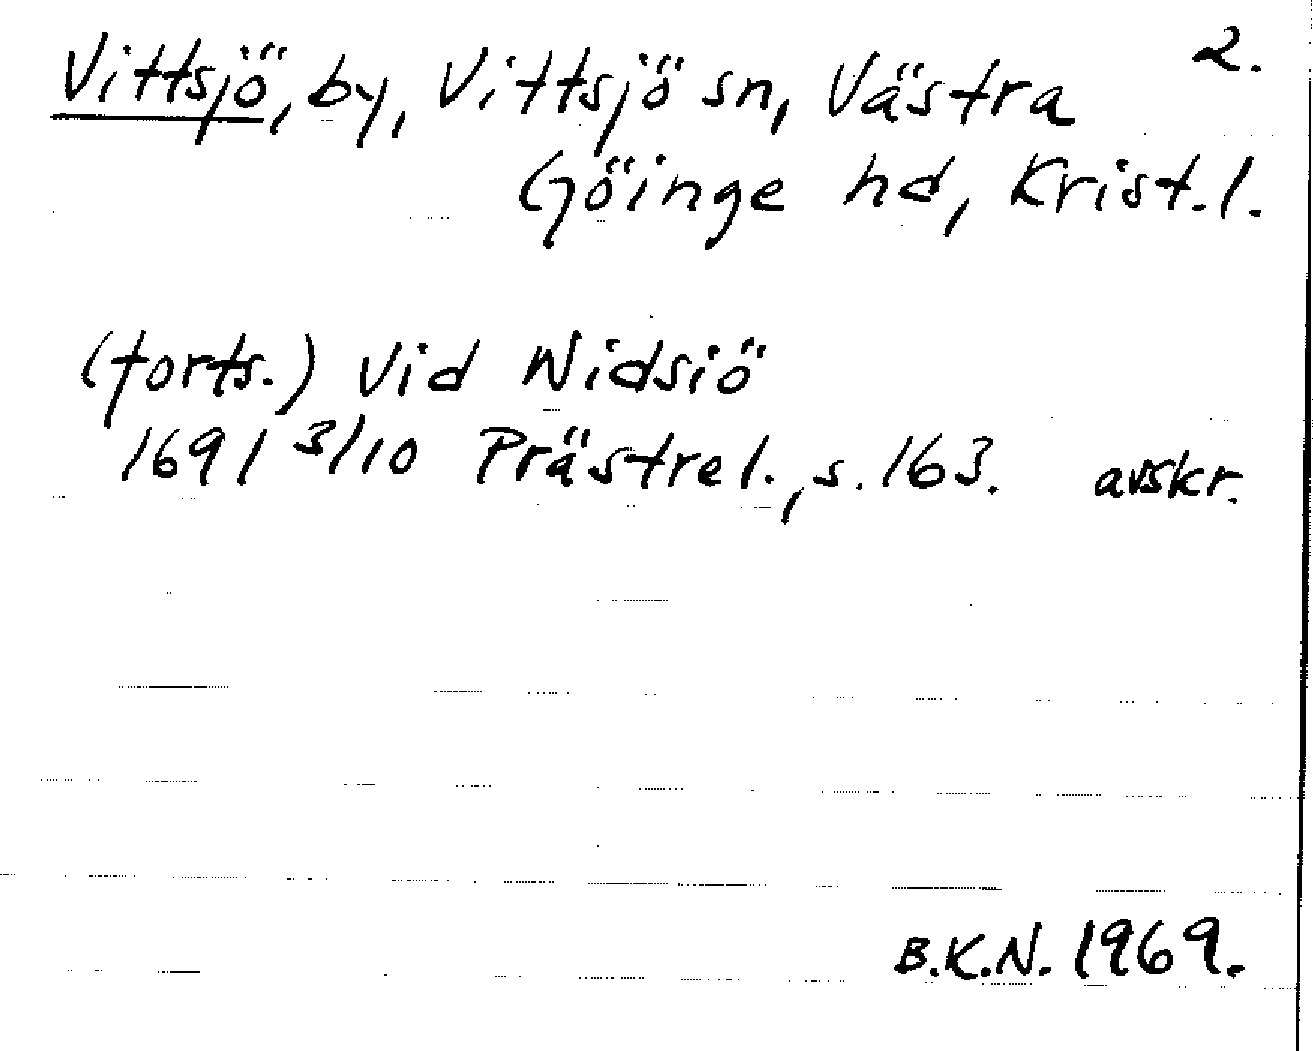 2.
Vittsjö, by, Vittsjö sn, Västra
Göinge hd, Krist. l.
(forts.) vid Widsiö
1691 3/10 Prästrel., s. 163. avskr.
B.K.N. 1969.